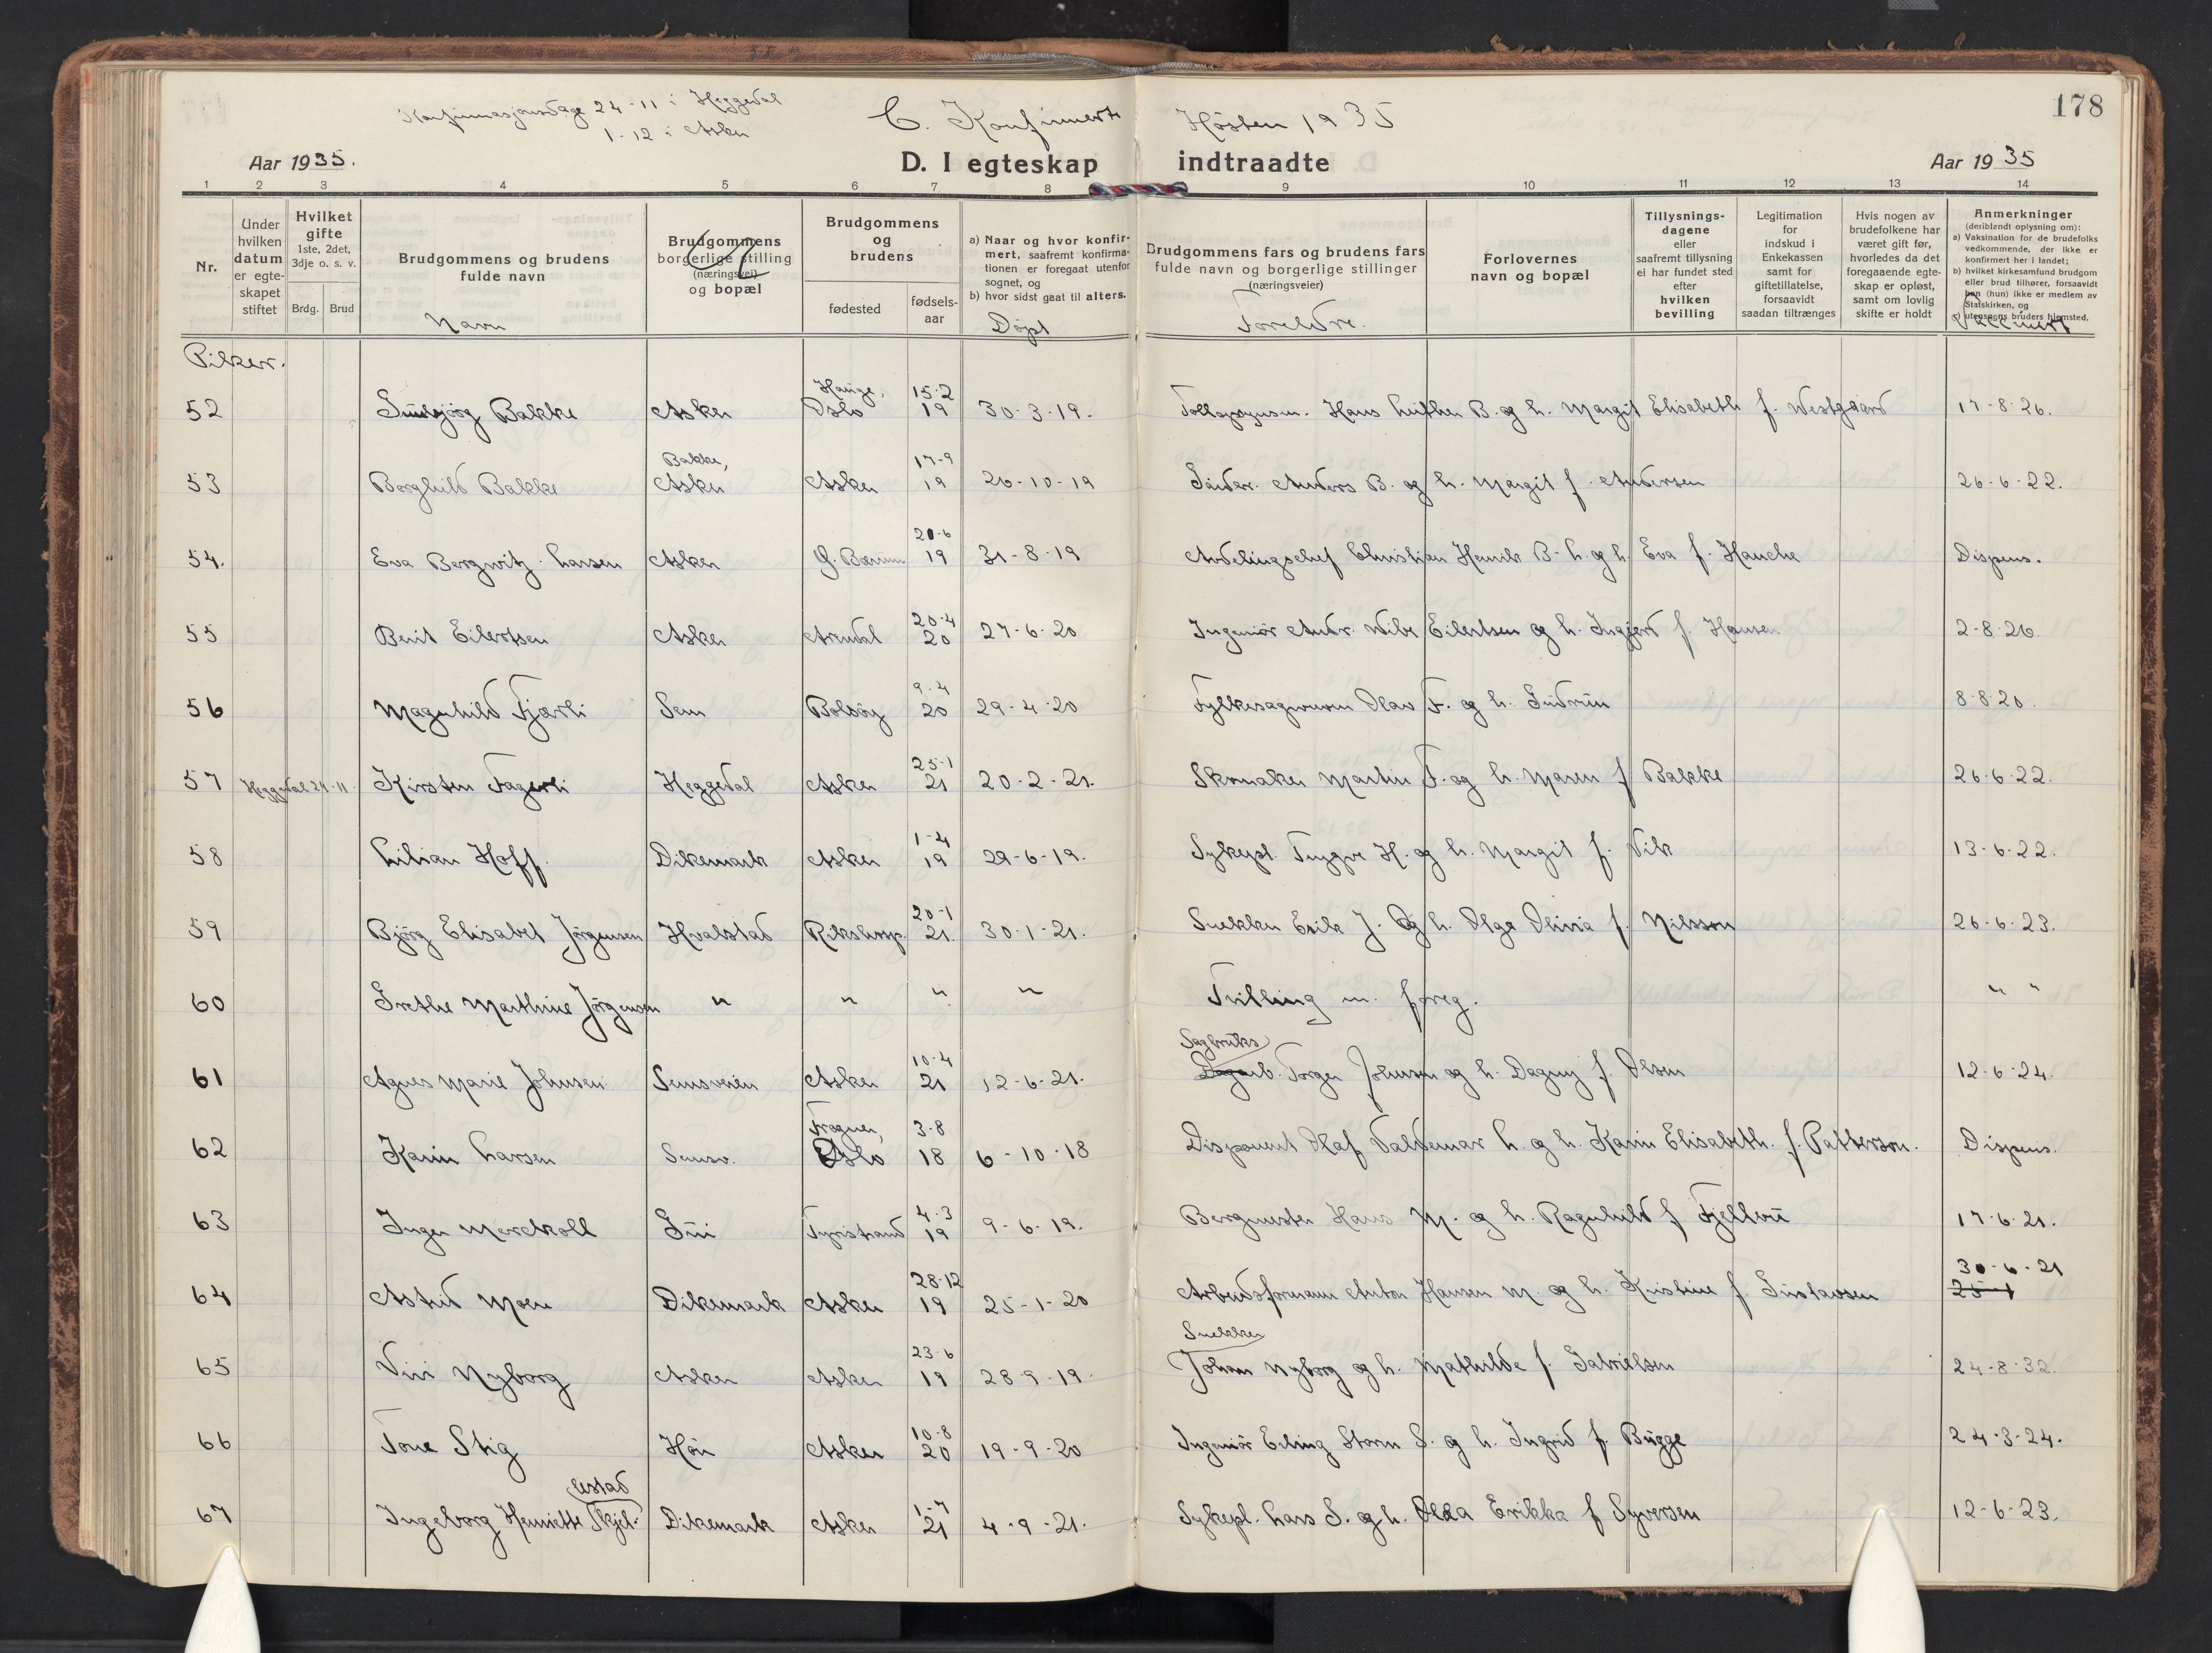 Konfirmasjonsdage 24-11 i Heggedal
1-12 i Asker
C. Konfirmerte Høsten 1935
178
Aar 1935.
D. I egteskap indtraadte
Aar 1935
1 2 3 4 5 6 7 8 9 10 11 12 13 14
Nr.
Under hvilken datum er egteskapet stiftet
Hvilket gifte 1ste, 2det, 3dje o. s. v.
Brdg. Brud
Brudgommens og brudens fulde navn
Navn
Brudgommens borgerlige stilling (næringsvei) og bopæl
Brudgommens og brudens
fødested
fødselsaar
a) Naar og hvor konfirmert, saafremt konfirmationen er foregaat utenfor sognet, og
b) hvor sidst gaat til alters.
Døpt
Brudgommens fars og brudens fars fulde navn og borgerlige stillinger (næringsveier)
Foreldre.
Forlovernes navn og bopæl
Tillysningsdagene eller saafremt tillysning ei har fundet sted efter hvilken bevilling
Legitimation for indskud i Enkekassen samt for giftetillatelse, forsaavidt saadan tiltrænges
Hvis nogen av brudefolkene har været gift før, hvorledes da det foregaaende egteskap er opløst, samt om lovlig skifte er holdt
Anmerkninger
(deriblandt oplysning om):
a) Vaksination for de brudefolks vedkommende, der ikke er konfirmert her i landet;
b) hvilket kirkesamfund brudgom eller brud tilhører, forsaavidt han (hun) ikke er medlem av Statskirken, og
c) utensogns bruders hjemsted.
Piker.
52 Synbjørg Bakke Asker Hauge, Oslo 15-2 19 30-3-19. Hans Luther B. og h. Margit Elisabeth f. Westgaard 17-8-26.
53 Borghild Bakke Bakke, Asker Asker 17-9 19 26-10-19 Anders B. og h. Margit f. Andersen 26-6-22.
54. Eva Bergwitz-Larsen Asker Ø. Bærum 20-6 19 31-8-19 Avdelingschef Christian Henrik B-L. og h. Eva f. Hauche Dispens.
55 Berit Eilertsen Asker Arendal 20-4 20 27-6-20 Ingeniør Andr. Wibe Eilertsen og h. Ingjerd f. Hansen 2-8-26.
56 Magnhild Fjærli Sem Bolsøy 9-4 20 29-4-20 Olav F. og h. Gudrun 8-8-20.
57 Heggedal 24-11 Kirsten Fagerli Heggedal Asker 25-1 21 20-2-21. Skomaker Martin F. og h. Maren f. Bakke 26-6-22.
58 Lilian Hoff. Dikemark Asker 1-4 19 29-6-19. Sykepl. Trygve H. og h. Margit f. Vik 13-6-22.
59 Bjørg Elisabet Jørgensen Hvalstad Rikshosp. 20-1 21. 30-1-21. Snekker Erik J. og h. Olga Olivia f. Nilsson 26-6-23.
60 Grethe Marthine Jørgensen " " " " Tvilling m. foreg. " "
61 Agnes Marie Johnsen Semsveien Asker 10-4 21 12-6-21. Sagbruks arb. Torger Johnsen og h. Dagny f. Olsen 12-6-24.
62 Karin Larsen Semsv. Frogner, Oslo 3-8 18 6-10-18 Disponent Olaf Valdemar L. og h. Karin Elisabeth f. Patterson. Dispens.
63 Inger Merckoll Gui Tyristrand 4-3 19 9-6-19. Bergmester Hans M. og h. Ragnhild f. Fjellvii 17-6-21.
64 Astrid Moen Dikemark Asker 28-12 19 25-1-20 Arbeidsformann Anton Hansen M. og h. Kristine f. Gustavsen 30-6-21 25-1
65 Vivi Nyborg Asker Asker 23-6 19 28-9-19. Snekker Johan Nyborg og h. Mathilde f. Gabrielsen 24-8-32.
66 Tove Stig Høn Asker 10-8 20 19-9-20 Ingeniør Erling Storm S. og h. Ingrid f. Bugge 24-3-24.
67 Ingeborg Henriette Skjel-lestad Dikemark Asker 1-7 21 4-9-21. Sykepl. Lars S. og h. Olea Erikka f. Syversen 12-6-23.